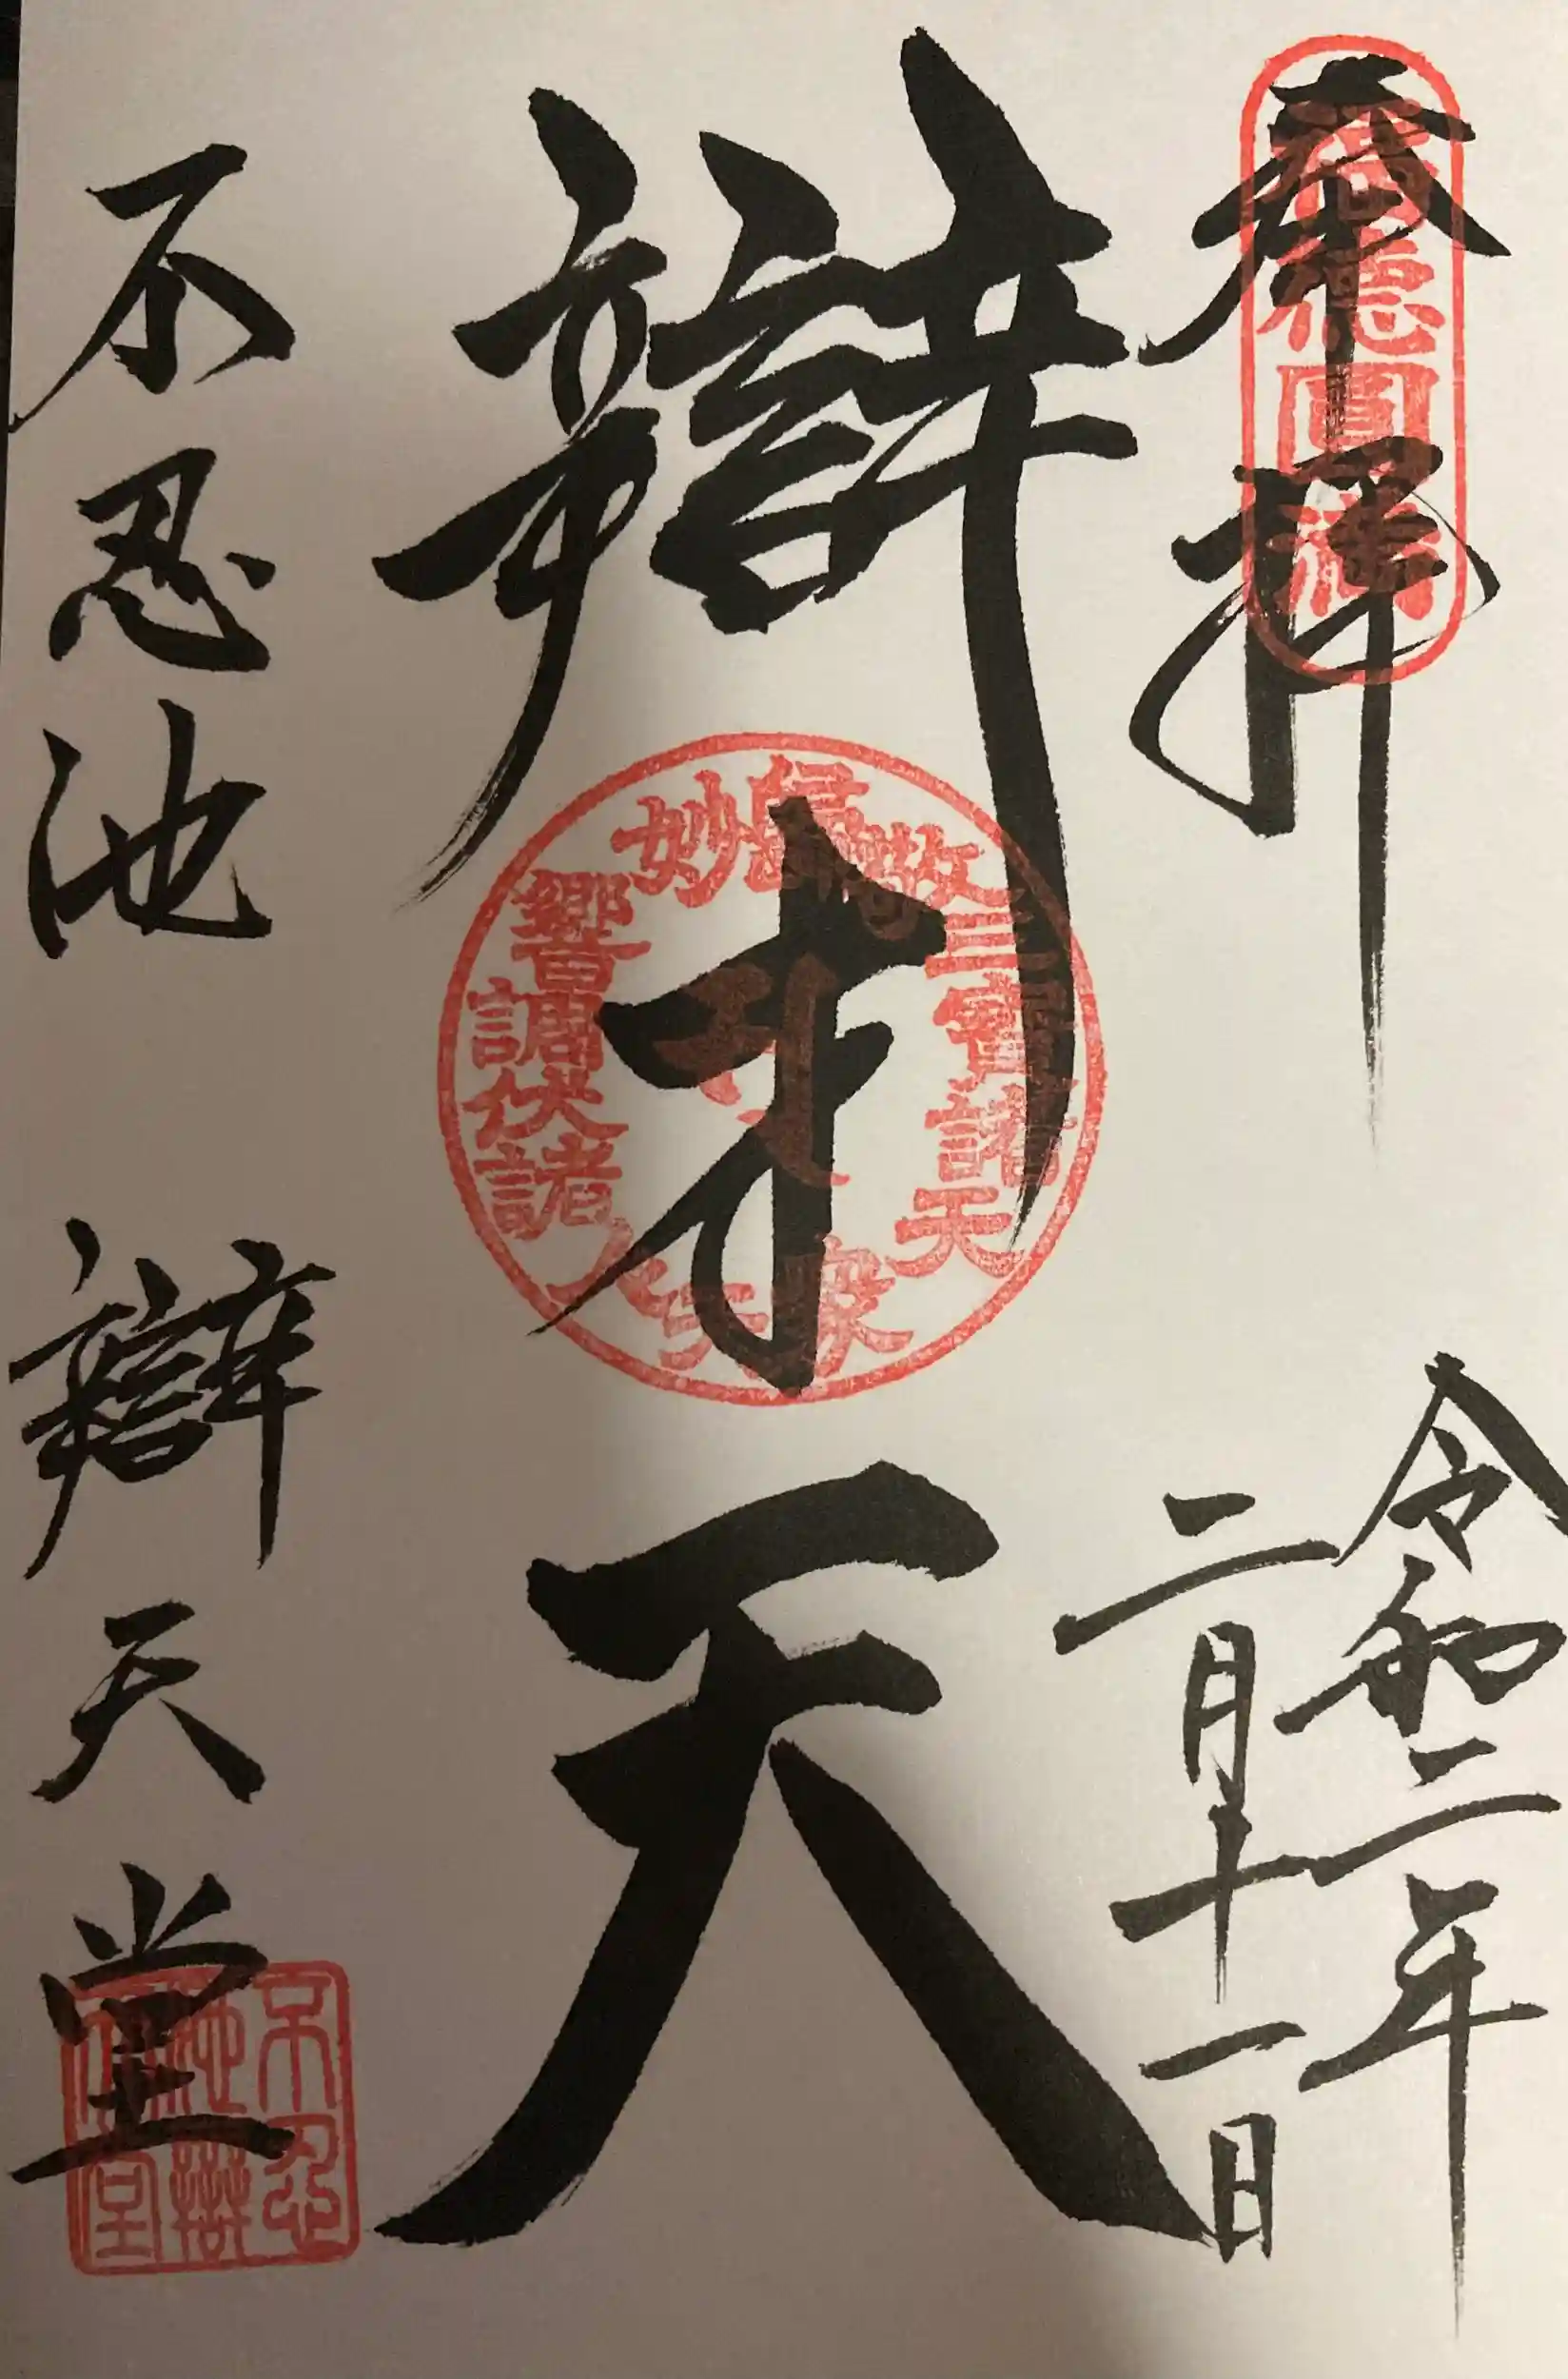 奉拝
令和二年
二月十一日
辯才天
不忍池
辯天堂
福徳圓満
敬三寳諸天
不忍池辯天堂